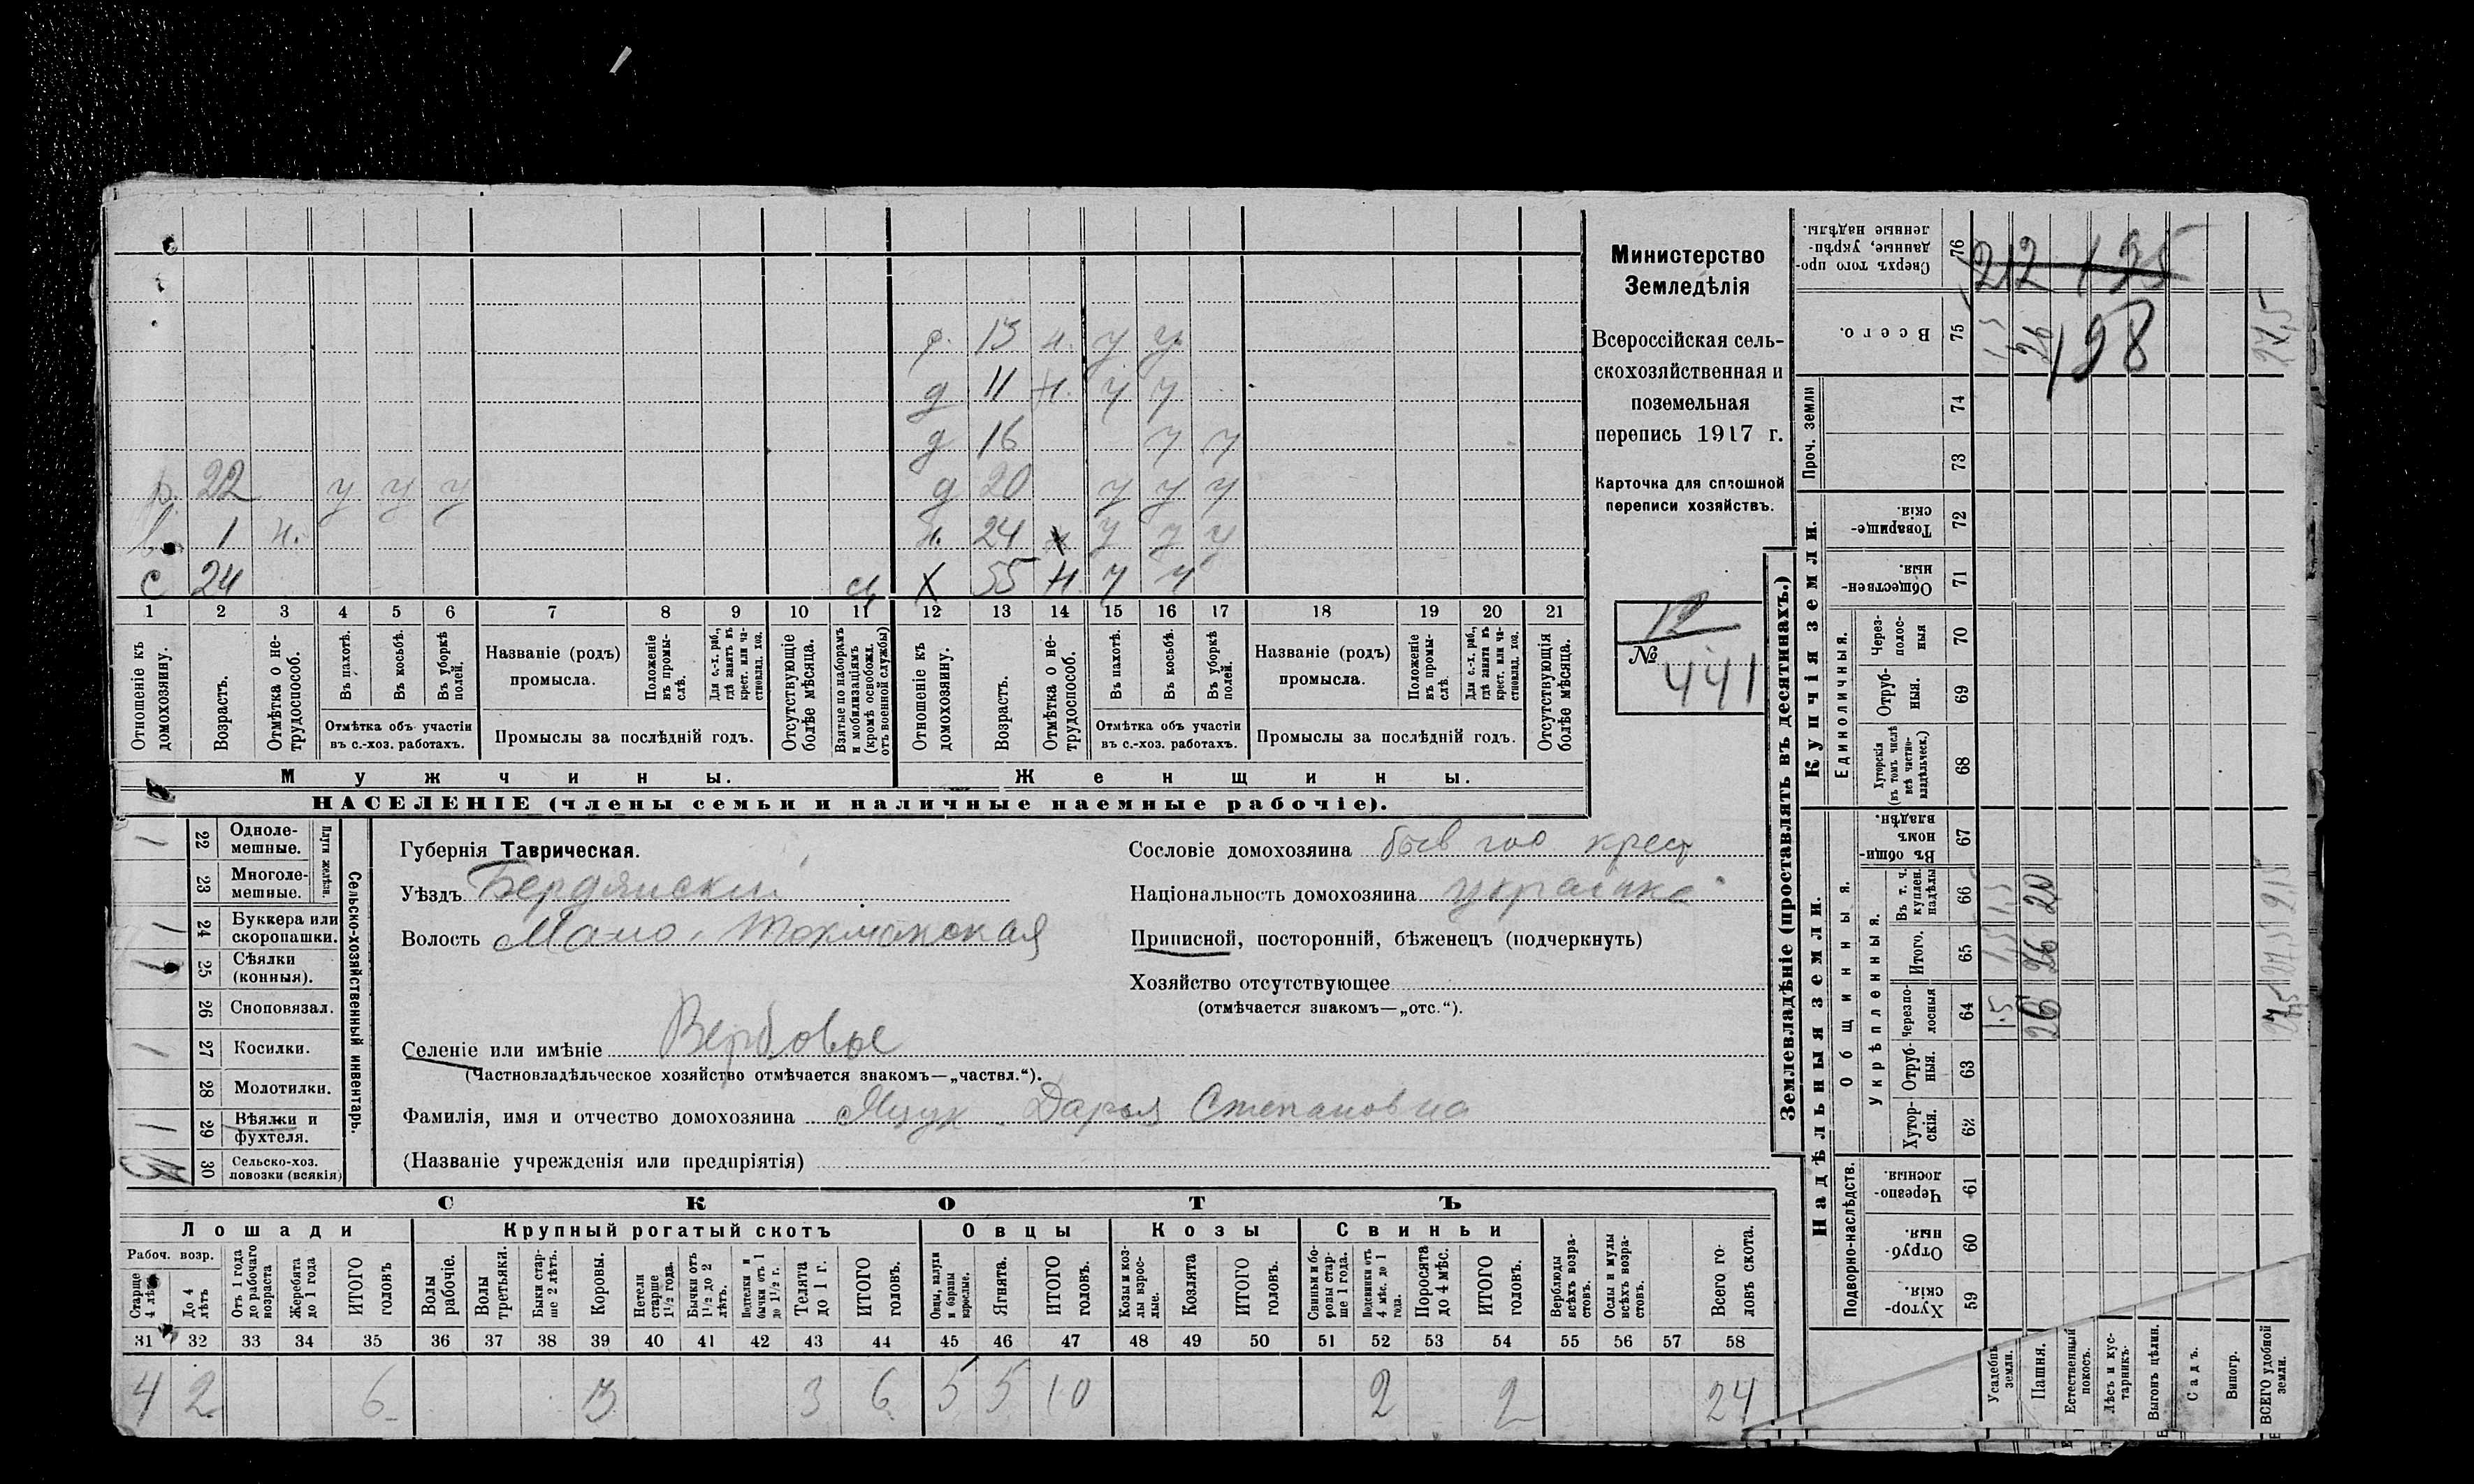 Министерство
Земледѣлія
Всероссійская сель-
скохозяйственная и
поземельная
перепись 1917 г.
Карточка для сплошной
переписи хозяйствъ.
12
№ 441
13 н. у у
д 11 н. у у
д 16 у у
р. 22 у у у
д 20 у у у
1 н.
н. 24 у у у
с 24
х 55 н у у
1 2 3 4 5 6 7 8 9 10 11 12 13 14 15 16 17 18 19 20 21
Отношеніе къ домохозяину.
Возрастъ.
Отмѣтка о не-трудоспособ.
Въ пахотѣ.
Въ косьбѣ.
Въ уборкѣ полей.
Отмѣтка объ участіи въ с.-хоз. работахъ.
Названіе (родъ) промысла.
Положеніе въ промы-слѣ.
Для с.-х. раб., гдѣ занятъ въ крест. или ча-стновлад. хоз.
Промыслы за послѣдній годъ.
Отсутствующіе болѣе мѣсяца.
Взятые по наборамъ и мобилизаціямъ (кромѣ освобожд. отъ военной службы)
Отношеніе къ домохозяину.
Возрастъ.
Отмѣтка о не-трудоспособ.
Въ пахотѣ.
Въ косьбѣ.
Въ уборкѣ полей.
Отмѣтка объ участіи въ с.-хоз. работахъ.
Названіе (родъ) промысла.
Положеніе въ промы-слѣ.
Для с.-х. раб., гдѣ занята въ крест. или ча-стновлад. хоз.
Промыслы за послѣдній годъ.
Отсутствующія болѣе мѣсяца.
Мужчины. Женщины.
НАСЕЛЕНІЕ (члены семьи и наличные наемные рабочіе).
Сельско-хозяйственный инвентарь.
Плуги желѣзн.
1 22 Одноле-мешные.
23 Многоле-мешные.
1 24 Буккера или скоропашки.
1 25 Сѣялки (конныя).
26 Сноповязал.
1 27 Косилки.
28 Молотилки.
1 29 Вѣялки и фухтеля.
30 Сельско-хоз. повозки (всякія)
Губернія Таврическая.
Уѣздъ Бердянскій
Волость Мало-Токмакская
Селеніе или имѣніе Вербовое
(Частновладѣльческое хозяйство отмѣчается знакомъ—„частвл.“).
Фамилія, имя и отчество домохозяина Яцук Дарья Степановна
(Названіе учрежденія или предпріятія)
Сословіе домохозяина бывъ гос крест
Національность домохозяина украинка
Приписной, посторонній, бѣженецъ (подчеркнуть)
Хозяйство отсутствующее
(отмѣчается знакомъ—„отс.“).
СКОТЪ
Лошади Крупный рогатый скотъ Овцы Козы Свиньи
Рабоч. возр.
Старше 4 лѣтъ
До 4 лѣтъ
Отъ 1 года до рабочаго возраста
Жеребята до 1 года
ИТОГО головъ
Волы рабочіе.
Волы третьяки.
Быки стар-ше 2 лѣтъ.
Коровы.
Нетели старше 1½ года.
Бычки отъ 1½ до 2 лѣтъ.
Нетелки и бычки отъ 1 до 1½ г.
Телята до 1 г.
ИТОГО головъ.
Овцы, валухи и бараны взрослые.
Ягнята.
ИТОГО головъ.
Козы и коз-лы взрос-лые.
Козлята
ИТОГО головъ.
Свиньи и бо-ровы стар-ше 1 года.
Подсвинки отъ 4 мѣс. до 1 года.
Поросята до 4 мѣс.
ИТОГО головъ.
Верблюды всѣхъ возра-стовъ.
Ослы и мулы всѣхъ возра-стовъ.
Всего го-ловъ скота.
31 32 33 34 35 36 37 38 39 40 41 42 43 44 45 46 47 48 49 50 51 52 53 54 55 56 57 58
4 2 6 3 3 6 5 5 10 2 2 24
Землевладѣніе (проставлять въ десятинахъ.)
Надѣльныя земли. Купчія земли.
Подворно-наслѣдств.
Общинныя.
Укрѣпленныя.
Единоличныя.
Проч. земли
Сверхъ того про-данные, укрѣп-ленные надѣлы. 76
212 195
Всего. 75 1,5 26 198 27,5
74
73
Товарище-скія. 72
Обществен-ныя. 71
Через-полос-ныя 70
Отруб-ныя. 69
Хуторскія (въ томъ числѣ всѣ частно-владѣльческ.) 68
Въ общин-номъ владѣн. 67
Въ т. ч. куплен. надѣлы 66 1,5 20
Итого. 65 1,5 26 27,5
Черезпо-лосныя 64 1.5 26
Отруб-ныя. 63
Хутор-скія. 62
Черезпо-лосныя. 61
Отруб-ныя. 60
Хутор-скія. 59
Усадебн. земли.
Пашня.
Естественный покосъ.
Лѣсъ и кус-тарникъ.
Выгонъ цѣлин.
Садъ.
Виногр.
ВСЕГО удобной земли.